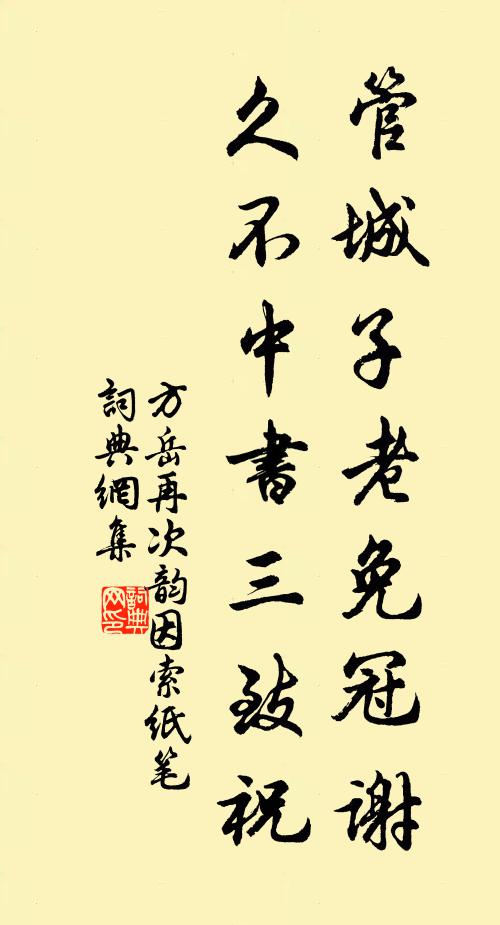 管城子老免冠谢
久不中書三致祝
方岳再次韵因索纸笔
詞典網集
詞典
网印